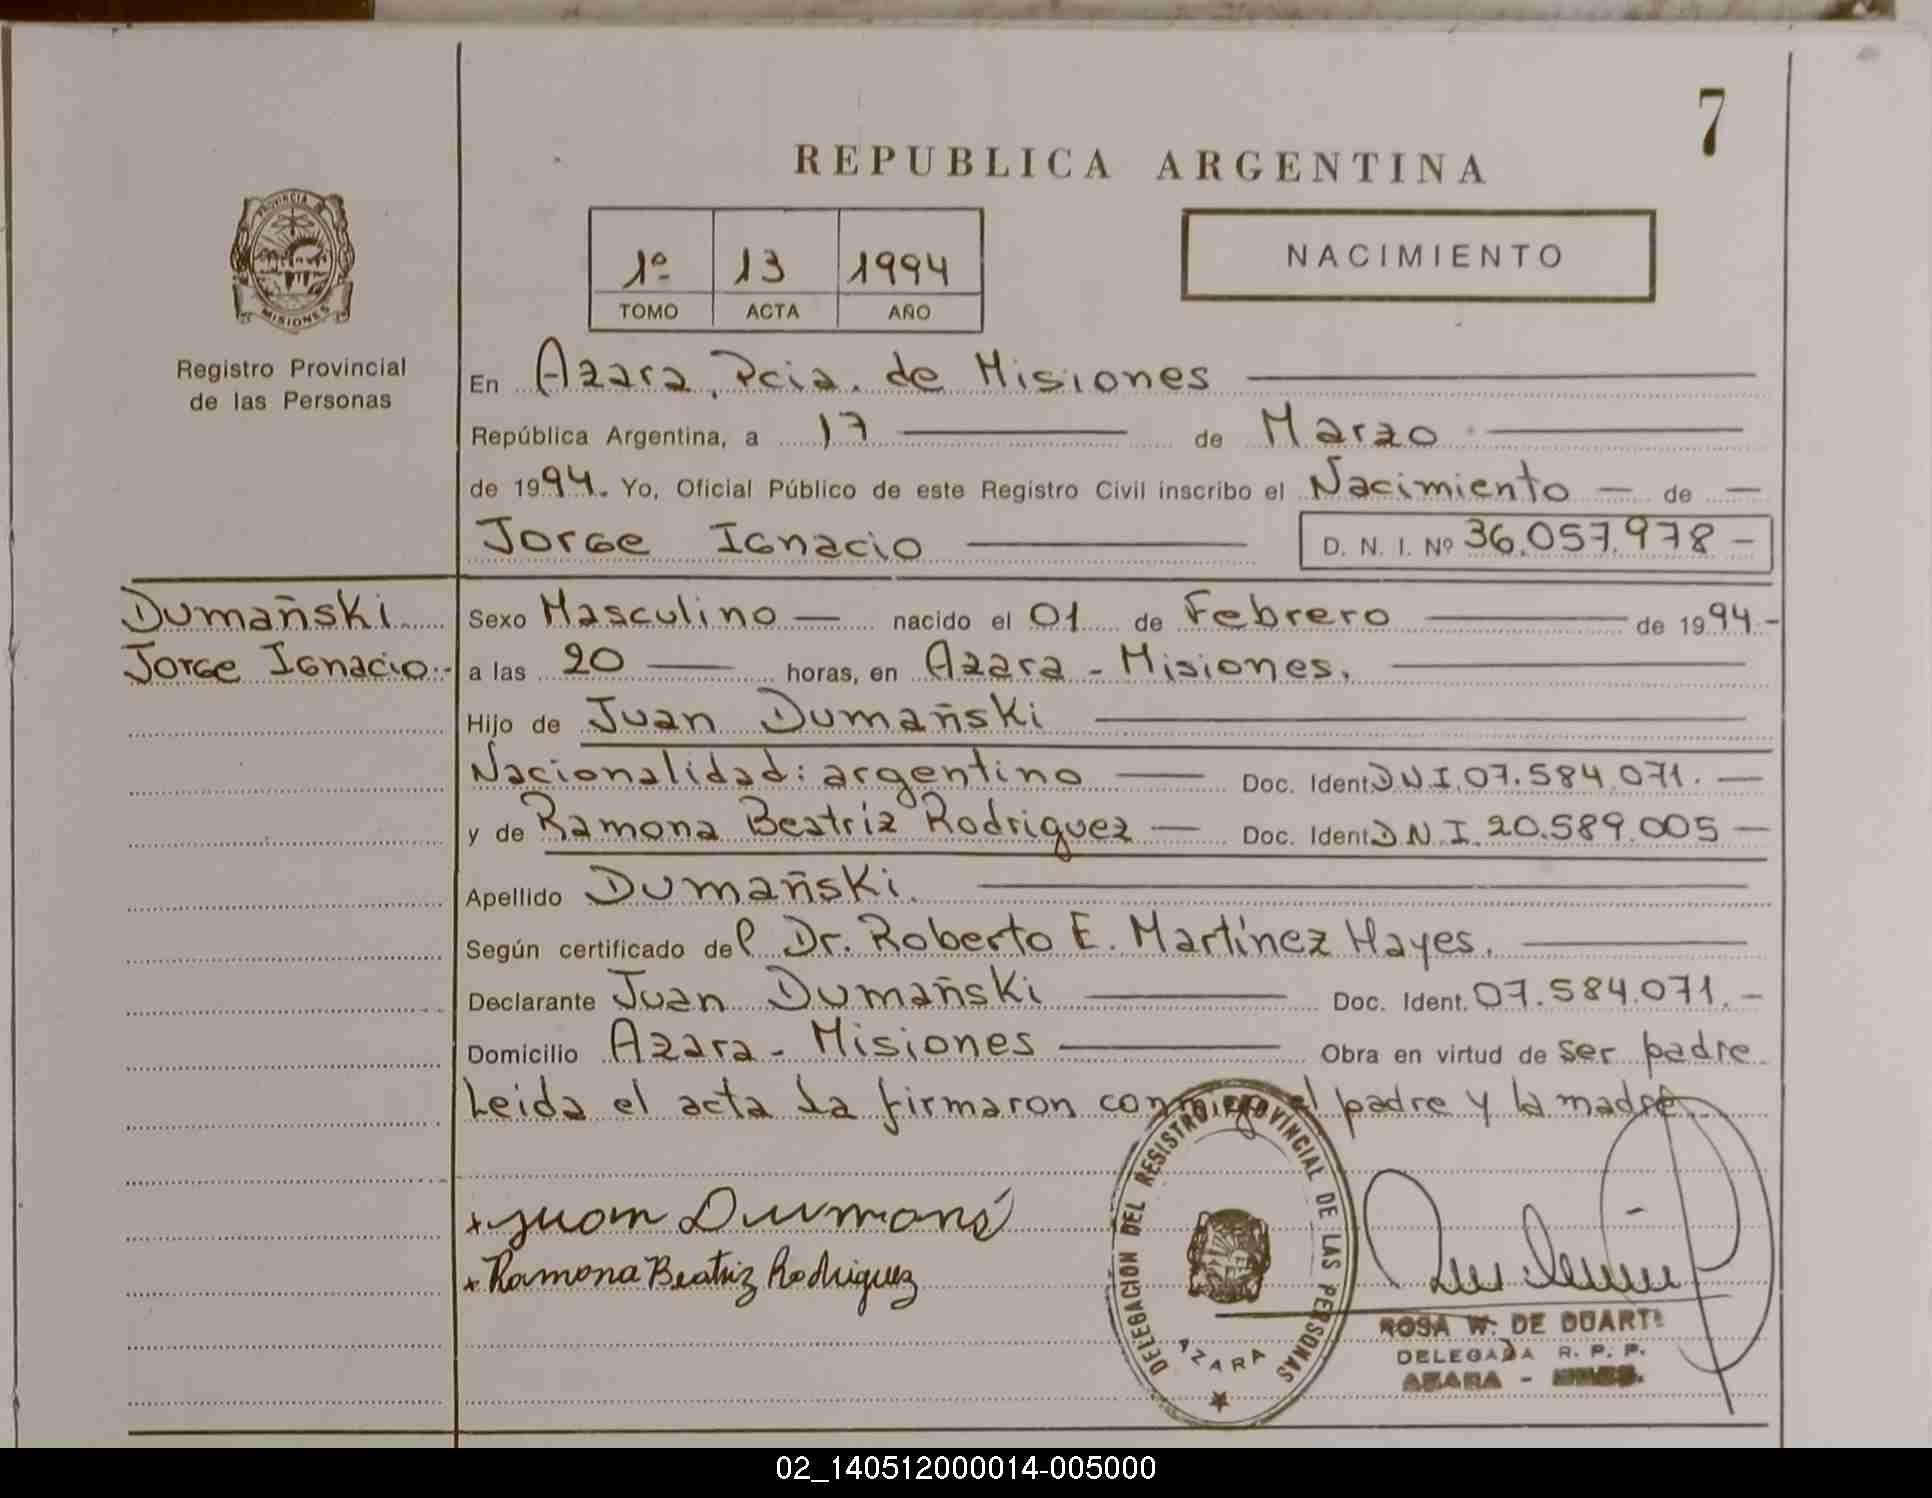 7
REPUBLICA ARGENTINA
PROVINCIA DE
MISIONES
Registro Provincial
de las Personas
1º 13 1994
TOMO ACTA AÑO
NACIMIENTO
En Azara, Pcia. de Misiones
República Argentina, a 17 de Marzo
de 1994. Yo, Oficial Público de este Registro Civil inscribo el Nacimiento — de —
Jorge Ignacio D. N. I. Nº 36.057.978 -
Dumañski
Jorge Ignacio.-
Sexo Masculino — nacido el 01 de Febrero de 1994.-
a las 20 horas, en Azara - Misiones.
Hijo de Juan Dumañski
Nacionalidad: argentino — Doc. Ident. D.N.I. 07.584.071. —
y de Ramona Beatriz Rodriguez — Doc. Ident. D.N.I. 20.589.005 —
Apellido Dumañski.
Según certificado del Dr. Roberto E. Martínez Hayes.
Declarante Juan Dumañski Doc. Ident. 07.584.071. -
Domicilio Azara - Misiones Obra en virtud de ser padre
Leida el acta la firmaron conmigo el padre y la madre
x Juan
x Ramona Beatriz Rodriguez
DELEGACION DEL REGISTRO PROVINCIAL DE LAS PERSONAS
AZARA
ROSA W. DE DUARTE
DELEGADA R. P. P.
AZARA - MNES.
02_140512000014-005000